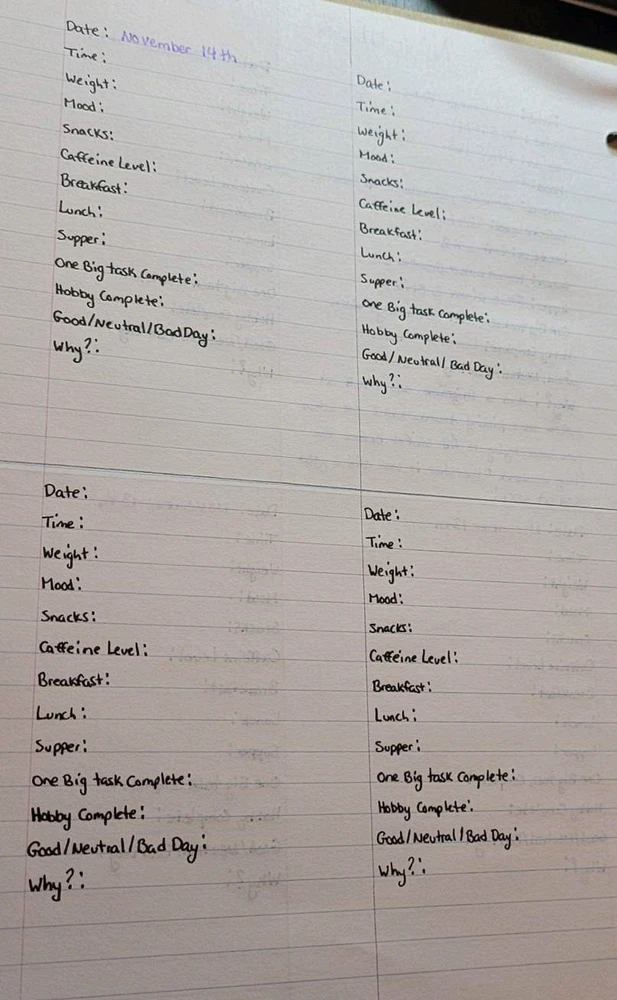 Date: November 14th
Time:
Weight:
Mood:
Snacks:
Caffeine Level:
Breakfast:
Lunch:
Supper:
One Big task Complete:
Hobby Complete:
Good/Neutral/Bad Day:
Why?:
Date:
Time:
Weight:
Mood:
Snacks:
Caffeine Level:
Breakfast:
Lunch:
Supper:
One Big task Complete:
Hobby Complete:
Good/Neutral/Bad Day:
Why?:
Date:
Time:
Weight:
Mood:
Snacks:
Caffeine Level:
Breakfast:
Lunch:
Supper:
One Big task Complete:
Hobby Complete:
Good/Neutral/Bad Day:
Why?:
Date:
Time:
Weight:
Mood:
Snacks:
Caffeine Level:
Breakfast:
Lunch:
Supper:
One Big task Complete:
Hobby Complete:
Good/Neutral/Bad Day:
Why?: